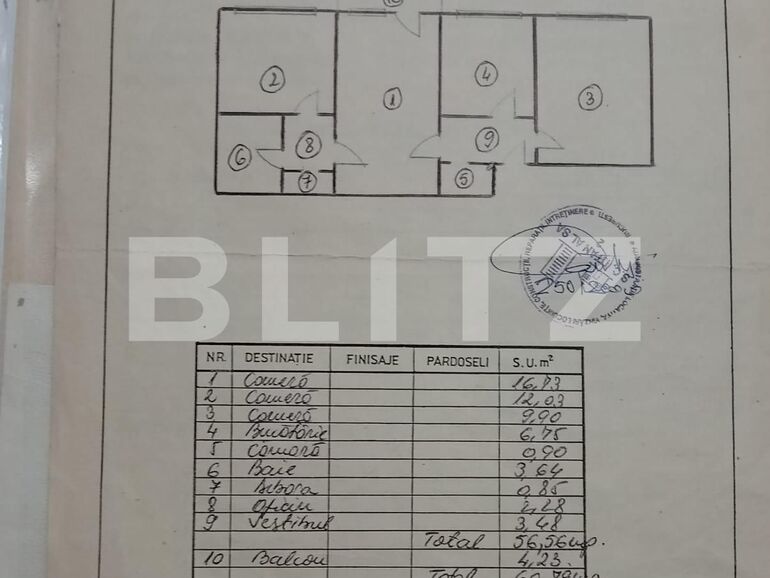 10
2
1
4
3
6
8
9
7
5
BLITZ
NR. DESTINAȚIE FINISAJE PARDOSELI S.U. m²
1 Cameră 16,73
2 Cameră 12,03
3 Cameră 9,90
4 Bucătărie 6,75
5 Cămară 0,90
6 Baie 3,64
7 Debara 0,85
8 Oficiu 2,28
9 Vestibul 3,48
Total 56,56 mp.
10 Balcon 4,23.
Total 60,79 mp